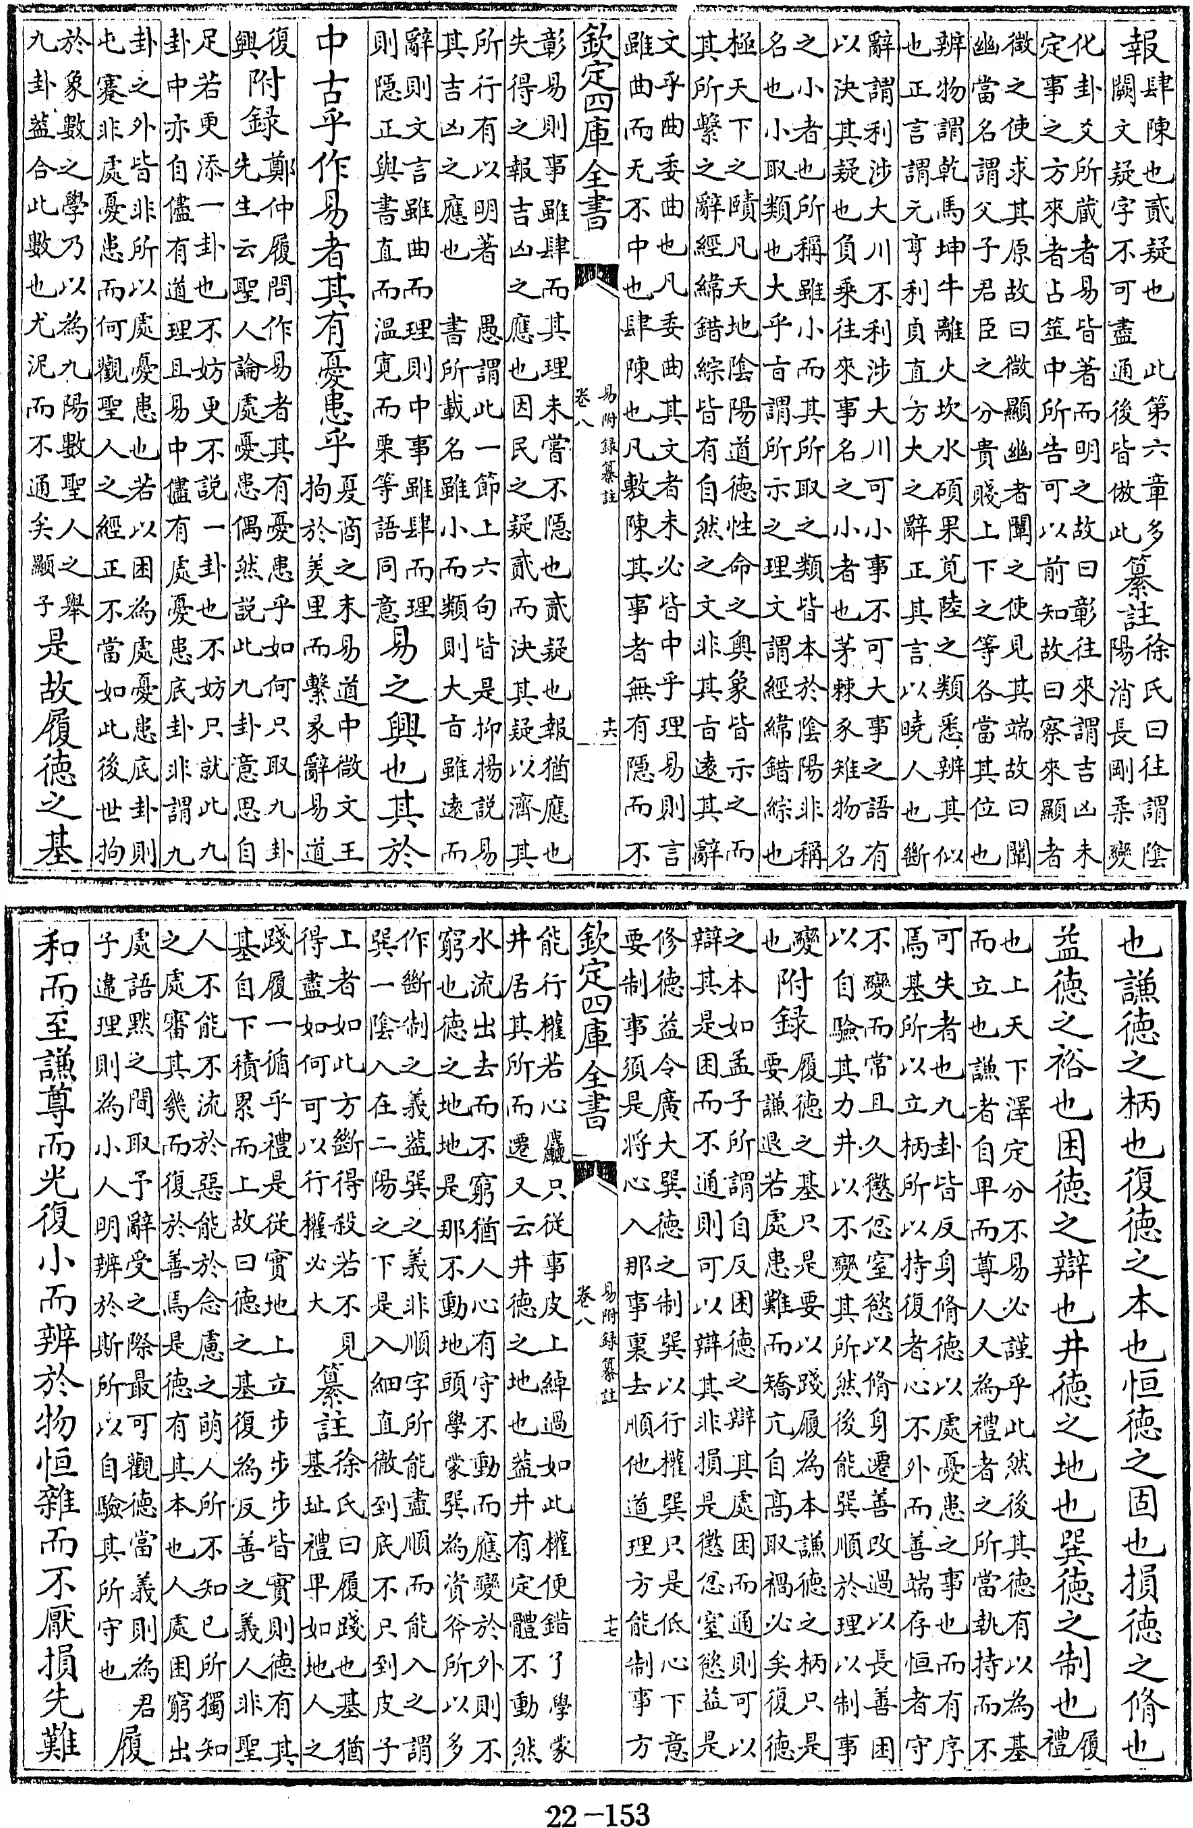 報肆陳也貳疑也 此第六章多
闕文疑字不可盡通後皆倣此纂註徐氏曰往謂陰
陽消長剛柔變
化卦爻所蔵者易皆著而明之故曰彰往來謂吉凶未
定事之方來者占筮中所告可以前知故曰察來顯者
微之使求其原故曰微顯幽者闡之使見其端故曰闡
幽當名謂父子君臣之分貴賤上下之等各當其位也
辨物謂乾馬坤牛離火坎水碩果莧陸之類悉辨其似
也正言謂元亨利貞直方大之辭正其言以曉人也斷
辭謂利涉大川不利涉大川可小事不可大事之語有
以決其疑也負乘往來事名之小者也茅棘豕雉物名
之小者也所稱雖小而其所取之類皆本於陰陽非稱
名也小取類也大乎㫖謂所示之理文謂經緯錯綜也
極天下之賾凡天地陰陽道德性命之奥象皆示之而
其所繫之辭經緯錯綜皆有自然之文非其㫖遠其辭
文乎曲委曲也凡委曲其文者未必皆中乎理易則言
雖曲而无不中也肆陳也凡敷陳其事者無有隱而不
欽定四庫全書
易附録纂註
卷八
十六
彰易則事雖肆而其理未嘗不隱也貳疑也報猶應也
失得之報吉凶之應也因民之疑貳而決其疑以濟其
所行有以明著 愚謂此一節上六句皆是抑揚說易
其吉凶之應也 書所載名雖小而類則大㫖雖遠而
辭則文言雖曲而理則中事雖肆而理
則隠正與書直而溫寛而栗等語同意易之興也其於
中古乎作易者其有憂患乎夏商之末易道中微文王
拘於羑里而繫彖辭易道
復
興附録鄭仲履問作易者其有憂患乎如何只取九卦
先生云聖人論處憂患偶然說此九卦意思自
足若更添一卦也不妨更不說一卦也不妨只就此九
卦中亦自儘有道理且易中儘有處憂患底卦非謂九
卦之外皆非所以處憂患也若以困為處憂患底卦則
屯蹇非處憂患而何觀聖人之經正不當如此後世拘
於象數之學乃以為九陽數聖人之舉
九卦蓋合此數也尤泥而不通矣顯子是故履德之基
也謙德之柄也復德之本也恒德之固也損德之脩也
益德之裕也困德之辯也井德之地也巽德之制也履
禮
也上天下澤定分不易必謹乎此然後其德有以為基
而立也謙者自卑而尊人又為禮者之所當執持而不
可失者也九卦皆反身脩德以處憂患之事也而有序
焉基所以立柄所以持復者心不外而善端存恒者守
不變而常且久懲忿窒慾以脩身遷善改過以長善困
以自驗其力井以不變其所然後能巽順於理以制事
變
也附録履德之基只是要以踐履為本謙德之柄只是
要謙退若處患難而矯亢自高取禍必矣復德
之本如孟子所謂自反困德之辯其處困而通則可以
辯其是困而不通則可以辯其非損是懲忿窒慾益是
修德益令廣大巽德之制巽以行權巽只是低心下意
要制事須是將心入那事裏去順他道理方能制事方
欽定四庫全書
易附録纂註
卷八
十七
能行權若心麤只從事皮上綽過如此權便錯了學蒙
井居其所而遷又云井德之地也蓋井有定體不動然
水流出去而不窮猶人心有守不動而應變於外則不
窮也德之地地是那不動地頭學蒙巽為資斧所以多
作斷制之義蓋巽之義非順字所能盡順而能入之謂
巽一陰入在二陽之下是入細直徹到底不只到皮子
上者如此方斷得殺若不見
得盡如何可以行權必大纂註徐氏曰履踐也基猶
基址禮卑如地人之
踐履一循乎禮是從實地上立步步步皆實則德有其
基自下積累而上故曰德之基復為反善之義人非聖
人不能不流於惡能於念慮之萌人所不知已所獨知
之處審其幾而復於善焉是德有其本也人處困窮出
處語默之間取予辭受之際最可觀德當義則為君
子違理則為小人明辨於斯所以自驗其所守也履
和而至謙尊而光復小而辨於物恒雜而不厭損先難
22-153